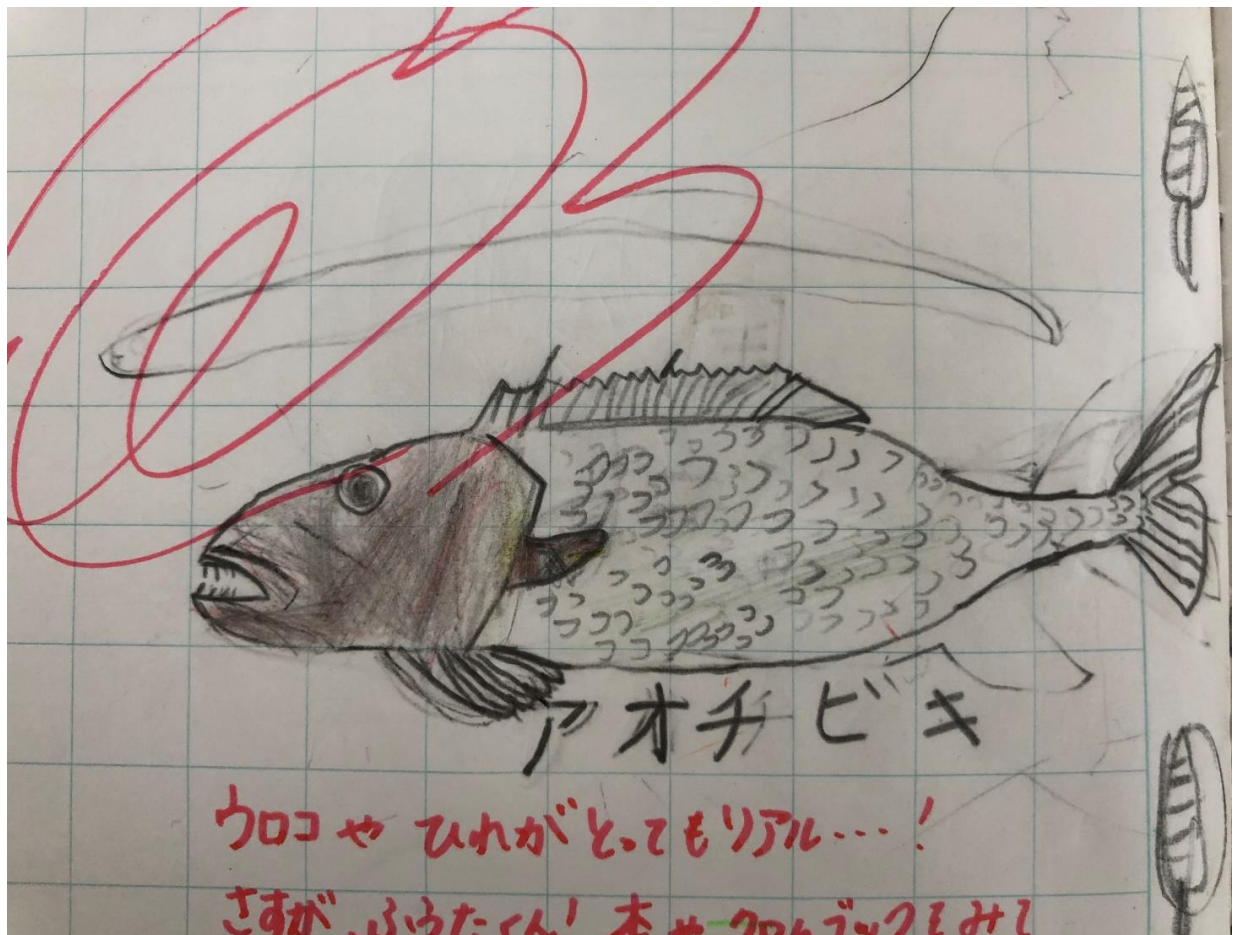 アオチビキ
ウロコや ひれが とっても リアル…!
さすが、ふうたくん! 本や クロムブックをみて